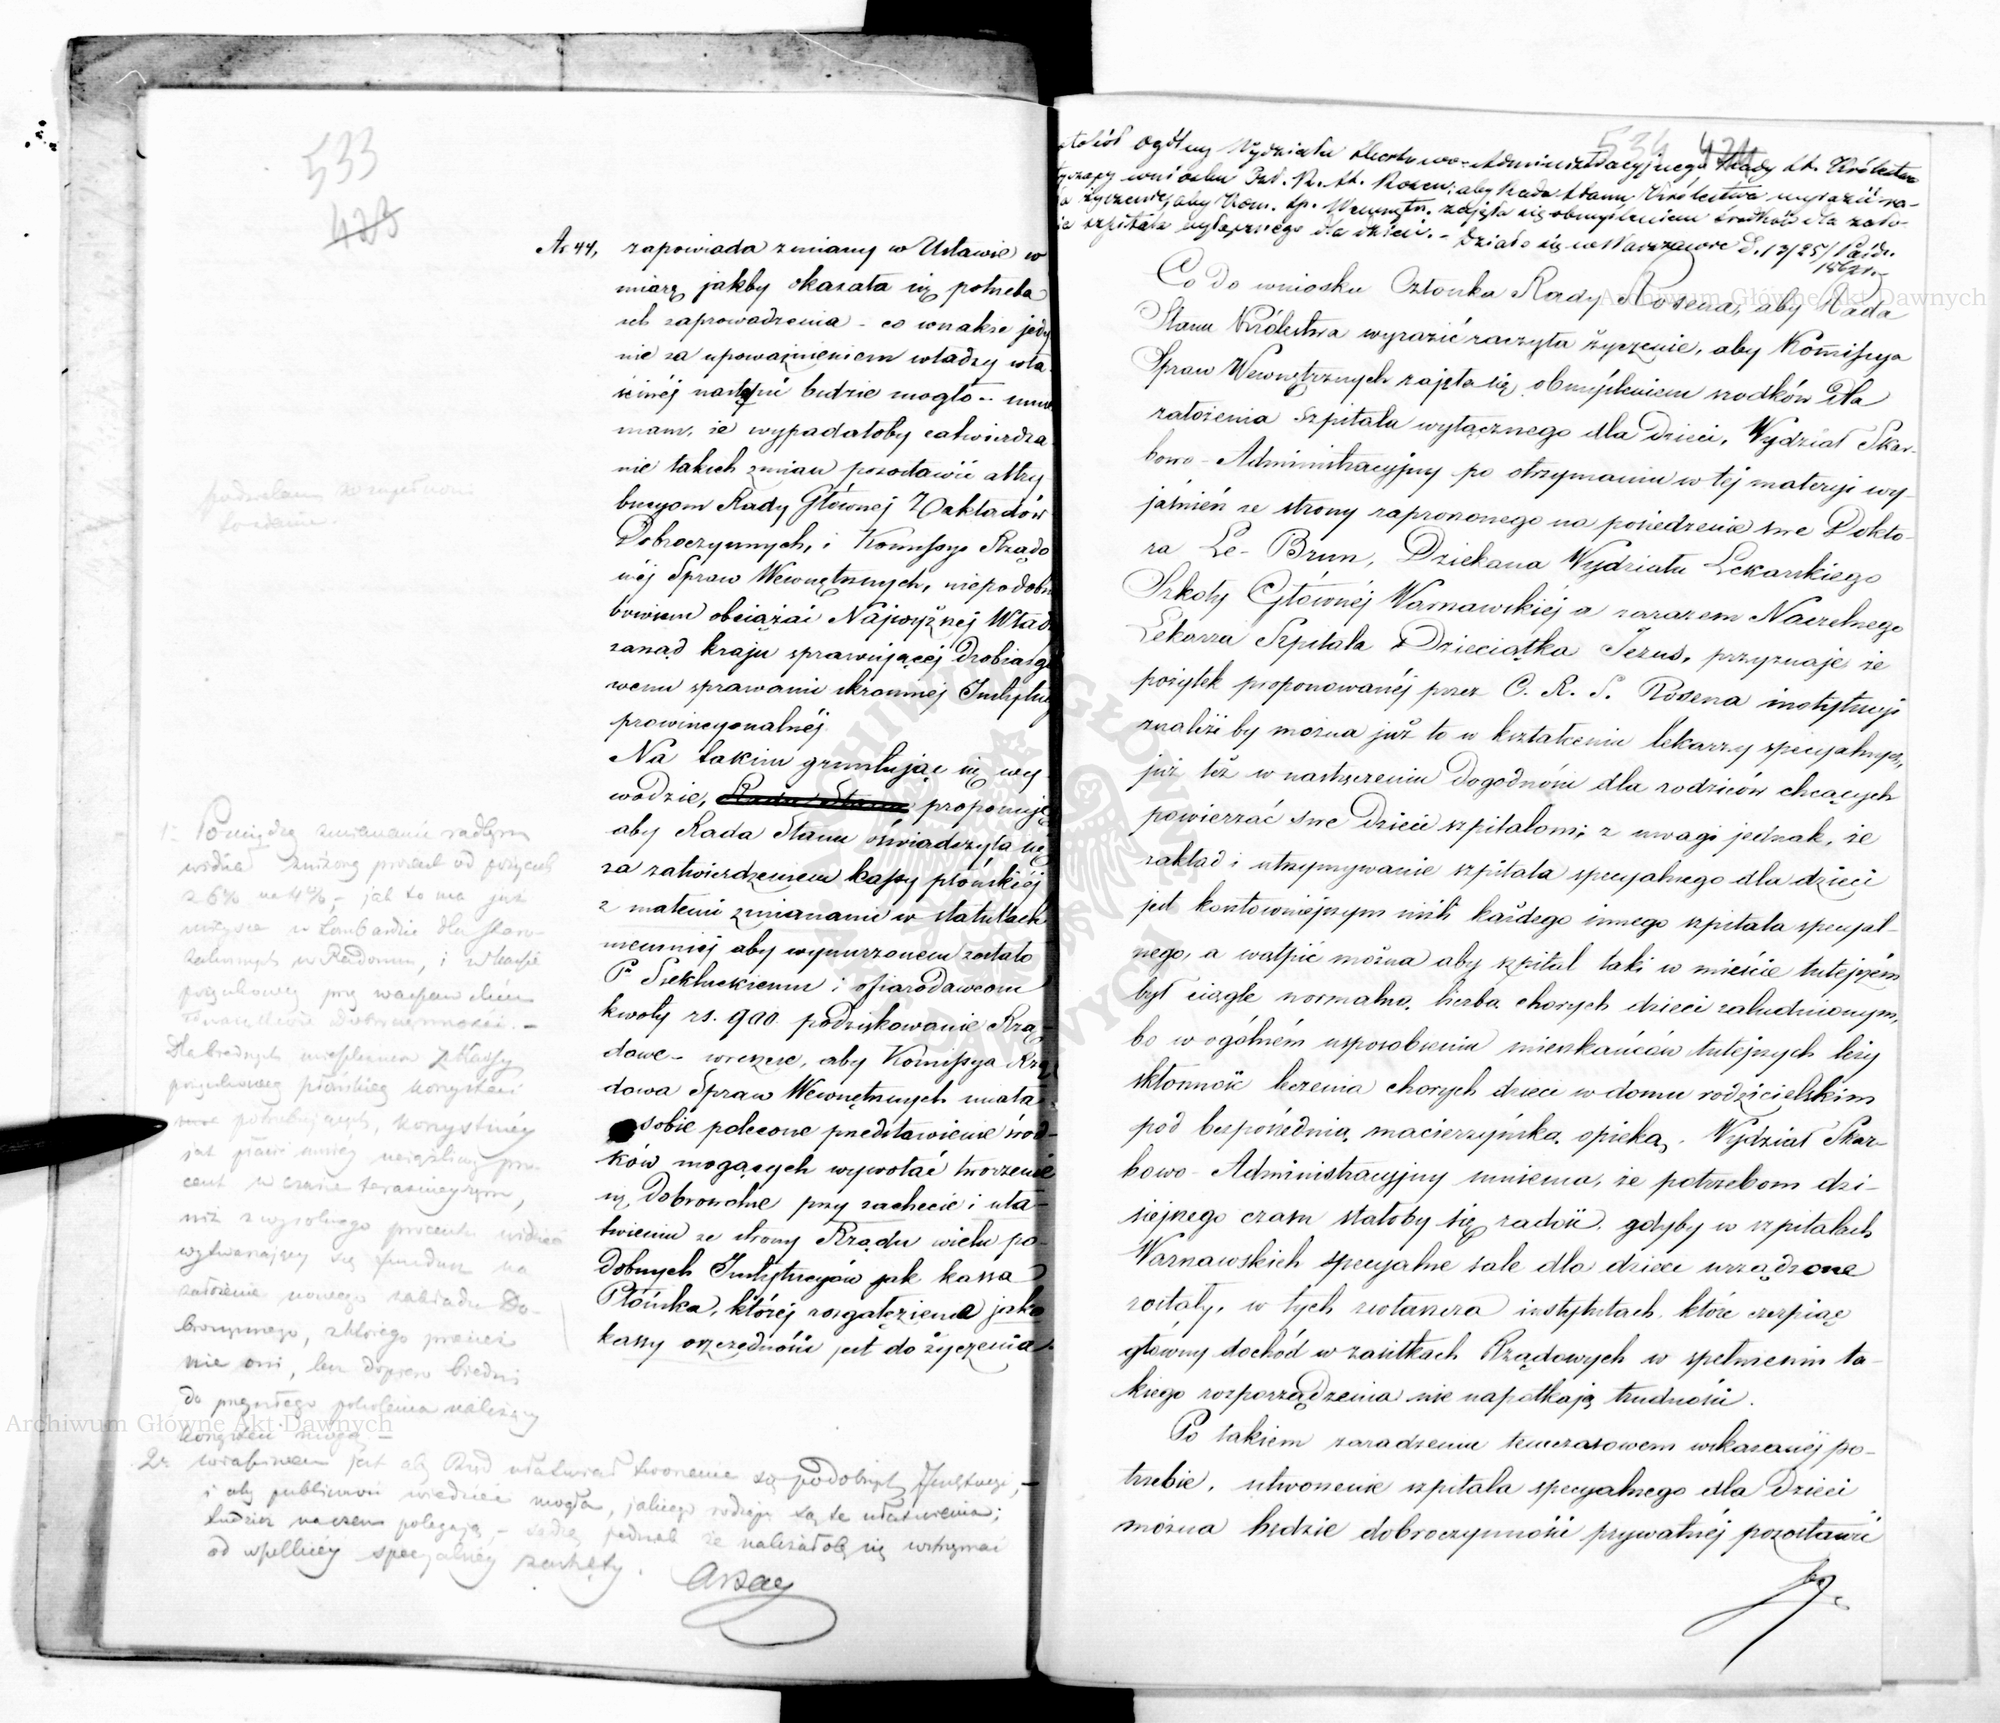 533
423
Ar 44, zapowiada zmiany w Ustawie w
miarę jakby okazała się potrzeba
ich zaprowadzenia - co wszakże jedy
nie za upoważnieniem władzy wła
ściwéj nastąpić będzie mogło -
mam, że wypadałoby zatwierdza
nie takich zmian pozostawić attry
bucyom Rady Głównej Zakładów
Dobroczynnych, i Komissyi Rządo
wéj Spraw Wewnętrznych, niepodobn
bowiem obciążać Najwyższej Wład
zarząd kraju sprawującéj drobiazgo
wemi sprawami skromnéj Instytuc
prowincyonalnéj.
Na takim gruntując się wy-
wodzie, Rada Stanu proponuję
aby Rada Stanu oświadczyła się
za zatwierdzeniem kassy płońskiéj
z małemi zmianami w statutach
niemniéj aby wynurzonem zostało
Pu i ofiarodawcom
kwoty rs. 900 podziękowanie Rzą-
dowe - wreszcie, aby Komissya Rzą
dowa Spraw Wewnętrznych miała
sobie polecone przedstawienie środ-
ków mogących wywołać tworzenie
się dobrowolne przy zachęcie i uła-
twieniu ze strony Rządu wielu po-
dobnych Instytucyów jak kassa
Płońska, któréj rozgałęzienie jako
kassy oszczędności jest do życzenia.
1o Pomiędzy zmianami
widzę zniżony procent od pożyczek
z 6% na 4%, - jak to ma już
miejsce w Lombardzie dla Staro-
zakonnych w Radomiu, i w kassie
pożyczkowej przy warszawskiém
Towarzystwie Dobroczynności. -
Dla biednych mieszkańców z kassy
pożyczkowej płońskiej korzystać
potrzebujących, korzystniéj
jest płacić mniéj uciążliwy pro-
cent w czasie teraźniejszym,
niż z wysokiego procentu widzieć
wytwarzający się fundusz na
założenie nowego zakładu Do-
broczynnego, z którego przecież
nie oni, lecz dopiero biedni
do przyszłego pokolenia należący
korzystać mogą -
2o jest aby Rząd ułatwiał tworzenie się podobnych Instytucji, -
i aby publiczność wiedzieć mogła, jakiego rodzaju są te ułatwienia;
tudzież na czem polegają, - sądzę jednak że należałoby się wstrzymać
od wszelkiey specyalnéy zachęty.
534 424
ogólny Wydziału Skarbowo-Administracyjnego Rady St. Królestwa
wniosku Czł. R. St. Rosen, aby Rada Stanu Królestwa wyrazić ra-
życzenie, aby Kom. Sp. Wewnętrz. zajęła się obmyśleniem środków dla zało-
szpitala wyłącznego dla dzieci. - Działo się w Warszawie d. 13/25/ Paźdz.
Co do wniosku Członka Rady Rosena, aby Rada
Stanu Królestwa wyrazić raczyła życzenie, aby Komissya
Spraw Wewnętrznych zajęła się obmyśleniem środków dla
założenia szpitala wyłącznego dla dzieci, Wydział Skar-
bowo-Administracyjny po otrzymaniu w téj materyi wy-
jaśnień ze strony zaproszonego na posiedzenie swe Dokto-
ra Le-Brun, Dziekana Wydziału Lekarskiego
Szkoły Głównéj Warszawskiéj a zarazem Naczelnego
Lekarza Szpitala Dzieciątka Jezus, przyznaje że
pożytek proponowanéj przez C. R. S. Rosena instytucyi
znaliźć by można już to w kształceniu lekarzy specyalnych,
już też w nastręczeniu dogodności dla rodziców chcących
powierzać swe dzieci szpitalom; z uwagi jednak, że
zakład i utrzymywanie szpitala specyalnego dla dzieci
jest kosztowniejszym niźli każdego innego szpitala specyal-
nego, a wątpić można aby szpital taki w mieście tutejszém
był ciągle normalną liczbą chorych dzieci zaludnionym,
bo w ogólném usposobieniu mieszkańców tutejszych leży
skłonność leczenia chorych dzieci w domu rodzicielskim
pod bezpośrednią macierzyńską opieką, Wydział Skar-
bowo-Administracyjny mniema, że potrzebom dzi-
siejszego czasu stałoby się zadość, gdyby w szpitalach
Warszawskich specyalne sale dla dzieci urządzone
zostały, w tych zwłaszcza instytutach, które czerpiąc
główny dochód w zasiłkach Rządowych w spełnieniu ta-
kiego rozporządzenia nie napotkają trudności.
Po takiem zaradzeniu tymczasowem wskazanéj po-
trzebie, utworzenie szpitala specyalnego dla Dzieci
można będzie dobroczynności prywatnéj pozostawić
Archiwum Główne Akt Dawnych
Archiwum Główne Akt Dawnych